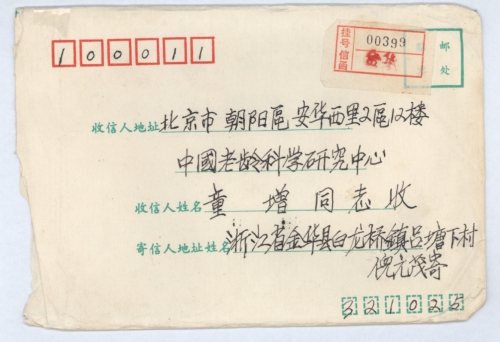 100011
挂号信函
00399
金华
邮
处
收信人地址 北京市朝阳區安华西里2區12楼
中國老龄科学研究中心
收信人姓名 童增同志收
寄信人地址姓名 浙江省金华县白龙桥鎮吕塘下村
倪元茂寄
321025